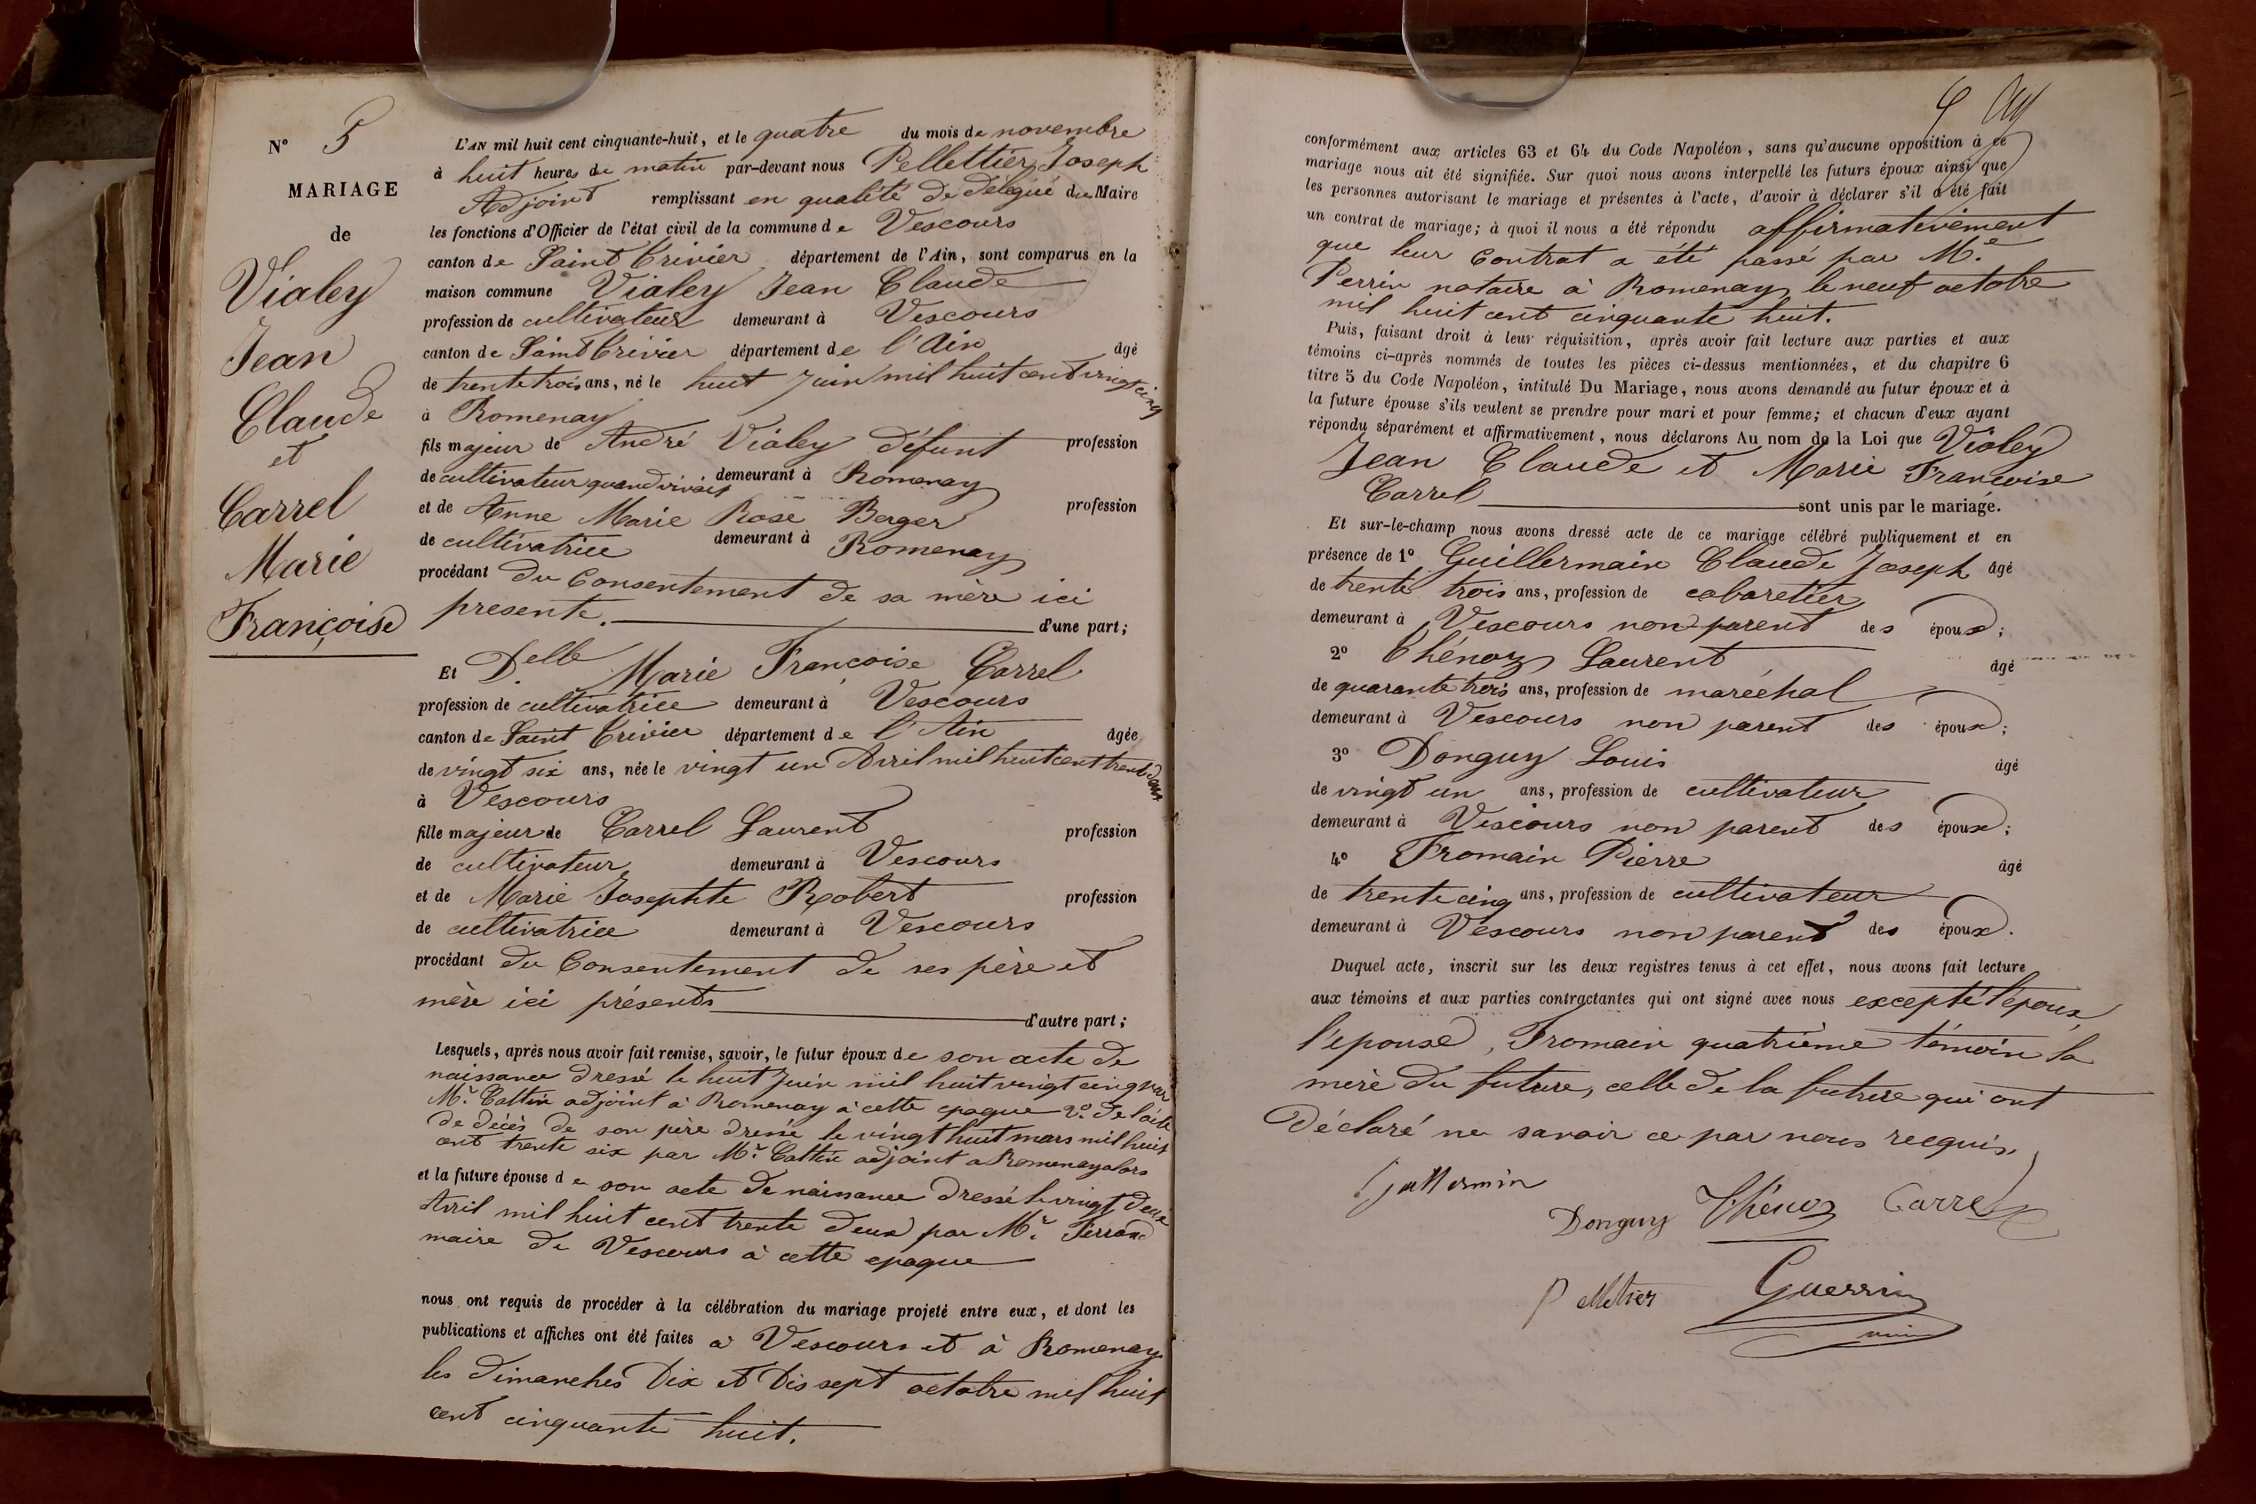 N° 5
MARIAGE
de
Vialey
Jean
Claude
et
Carrel
Marie
Françoise
L'AN mil huit cent cinquante-huit, et le quatre du mois de novembre
à huit heures du matin par-devant nous Pellettier Joseph
Adjoint remplissant en qualité de délégué du Maire
les fonctions d'Officier de l'état civil de la commune de Vescours
canton de Saint Trivier département de l'Ain, sont comparus en la
maison commune Vialey Jean Claude
profession de cultivateur demeurant à Vescours
canton de Saint Trivier département de l'Ain âgé
de trente trois ans, né le huit Juin mil huit cent vingt cinq
à Romenay
fils majeur de André Vialey défunt profession
de cultivateur quand vivait demeurant à Romenay
et de Anne Marie Rose Berger profession
de cultivatrice demeurant à Romenay
procédant du Consentement de sa mère ici
presente. d'une part;
Et Delle Marie Françoise Carrel
profession de cultivatrice demeurant à Vescours
canton de Saint Trivier département de l'Ain âgée
de vingt six ans, née le vingt un Avril mil huit cent trente deux
à Vescours
fille majeur de Carrel Laurent profession
de cultivateur demeurant à Vescours
et de Marie Josephte Robert profession
de cultivatrice demeurant à Vescours
procédant du Consentement de ses père et
mère ici présents d'autre part;
Lesquels, après nous avoir fait remise, savoir, le futur époux de son acte de
naissance dressé le huit Juin mil huit vingt cinq par
Mr. Cattin adjoint à Romenay à cette epoque 2° de l'acte
de décès de son père dressé le vingt huit mars mil huit
cent trente six par Mr. Cattin adjoint a Romenay alors
et la future épouse de son acte de naissance dressé le vingt deux
Avril mil huit cent trente deux par Mr. Ferrand
maire de Vescours à cette epoque
nous ont requis de procéder à la célébration du mariage projeté entre eux, et dont les
publications et affiches ont été faites à Vescours et à Romenay
les dimanches Dix et Dix sept octobre mil huit
cent cinquante huit.
conformément aux articles 63 et 64 du Code Napoléon, sans qu'aucune opposition à ce
mariage nous ait été signifiée. Sur quoi nous avons interpellé les futurs époux ainsi que
les personnes autorisant le mariage et présentes à l'acte, d'avoir à déclarer s'il a été fait
un contrat de mariage; à quoi il nous a été répondu affirmativement
que leur Contrat a été passé par Me
Perrin notaire à Romenay le neuf octobre
mil huit cent cinquante huit.
Puis, faisant droit à leur réquisition, après avoir fait lecture aux parties et aux
témoins ci-après nommés de toutes les pièces ci-dessus mentionnées, et du chapitre 6
titre 5 du Code Napoléon, intitulé Du Mariage, nous avons demandé au futur époux et à
la future épouse s'ils veulent se prendre pour mari et pour femme; et chacun d'eux ayant
répondu séparément et affirmativement, nous déclarons Au nom de la Loi que Vialey
Jean Claude et Marie Françoise
Carrel sont unis par le mariage.
Et sur-le-champ nous avons dressé acte de ce mariage célébré publiquement et en
présence de 1° Guillermain Claude Joseph âgé
de trente trois ans, profession de cabaretier
demeurant à Vescours non parent des époux;
2° Thénoz Laurent âgé
de quarante trois ans, profession de maréchal
demeurant à Vescours non parent des époux;
3° Donguy Louis âgé
de vingt un ans, profession de cultivateur
demeurant à Vescours non parent des époux;
4° Fromain Pierre âgé
de trente cinq ans, profession de cultivateur
demeurant à Vescours non parent des époux.
Duquel acte, inscrit sur les deux registres tenus à cet effet, nous avons fait lecture
aux témoins et aux parties contractantes qui ont signé avec nous excepté l'époux,
l'épouse, Fromain quatrième témoin la
mère du future, celle de la future qui ont
Déclaré ne savoir ce par nous recquis.
Guillermin
Donguy Thénoz Carrel
Pelletier Guerrin